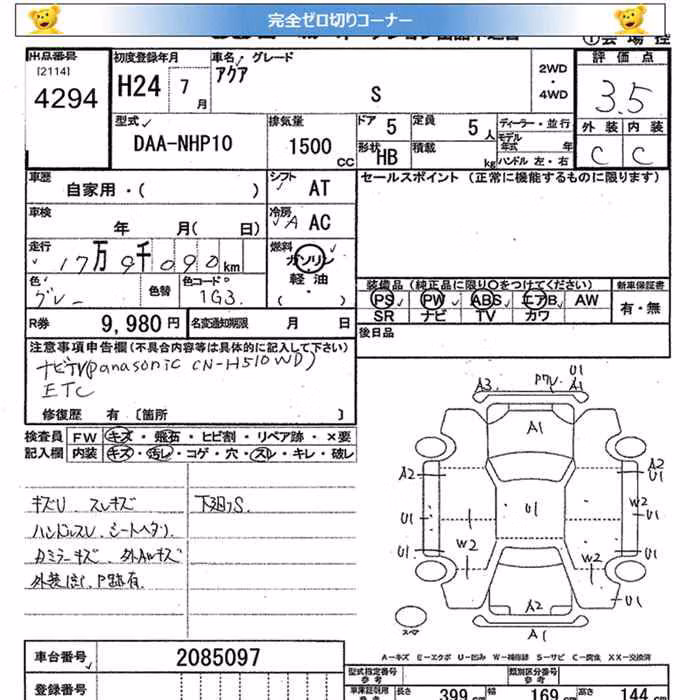 完全ゼロ切りコーナー
出品番号 初度登録年月 車名 グレード 評価点
[2114]
4294 H24 7月 アクア S 2WD・4WD 3.5
外装 内装
C C
型式 排気量 ドア 5 定員 5人 ディーラー・並行
DAA-NHP10 1500cc モデル年式 年
形状 HB 積載 kg ハンドル 左・右
車歴 自家用・( ) シフト AT セールスポイント (正常に機能するものに限ります)
車検 年 月( 日) 冷房 A AC
走行 17万9千090km 燃料 ガソリン 軽油 ( )
色 グレー 色替 色コード 1G3
装備品 (純正品に限り○をつけてください) 新車保証書
PS PW ABS エアB AW 有・無
SR ナビ TV カワ
R券 9,980円 名変通知期限 月 日 後日品
注意事項申告欄(不具合内容等は具体的に記入して下さい)
ナビTV(panasonic CN-H510WD)
ETC
修復歴 有 〔箇所 〕
検査員 FW キズ・飛石・ヒビ割・リペア跡・×要
記入欄 内装 キズ・汚レ・コゲ・穴・スレ・キレ・破レ
キズU スレキズ 下廻りS.
ハンドルスレ シートヘタリ
カミラーキズ 外AWキズ
A3 U1
A1
A1
A2 A2
U1
U1 U1 W2 U1
U1 W2 W2 U1
U1
A2
A1
スペア
A-キズ E-エクボ U-凹み W-補修跡 S-サビ C-腐食 XX-交換済
車台番号 2085097 型式指定番号 参考 類別区分番号 参考
登録番号 長さ 399 幅 169 高さ 144